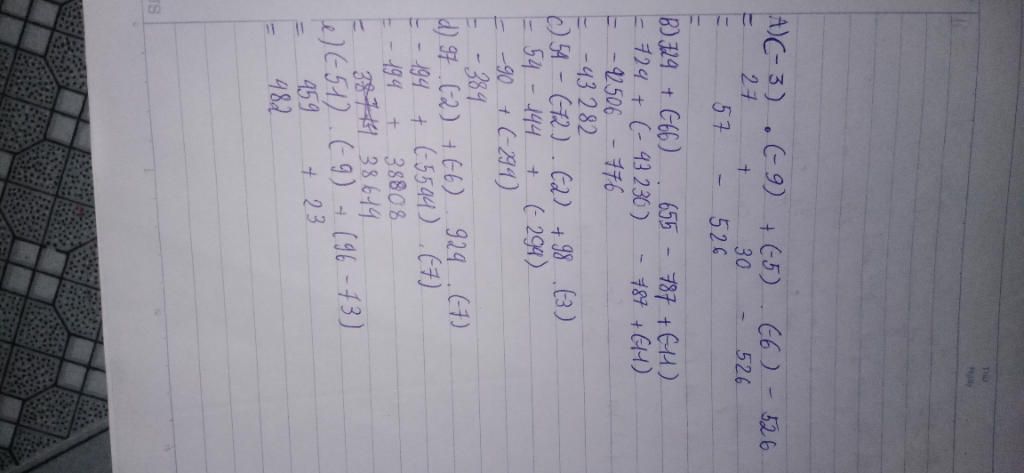 A) (-3) . (-9) + (-5) . (-6) - 526
= 27 + 30 - 526
= 57 - 526
=
B) 724 + (-66) . 655 - 787 + (-11)
= 724 + (-43230) - 787 + (-11)
= -42506 - 776
= -43282
c) 54 - (-72) . (-2) + 98 . (-3)
= 54 - 144 + (-294)
= -90 + (-294)
= -384
d) 97 . (-2) + (-6) . 924 . (-7)
= -194 + (-5544) . (-7)
= -194 + 38808
= 38614
e) (-51) . (-9) + (96 - 73)
= 459 + 23
= 482